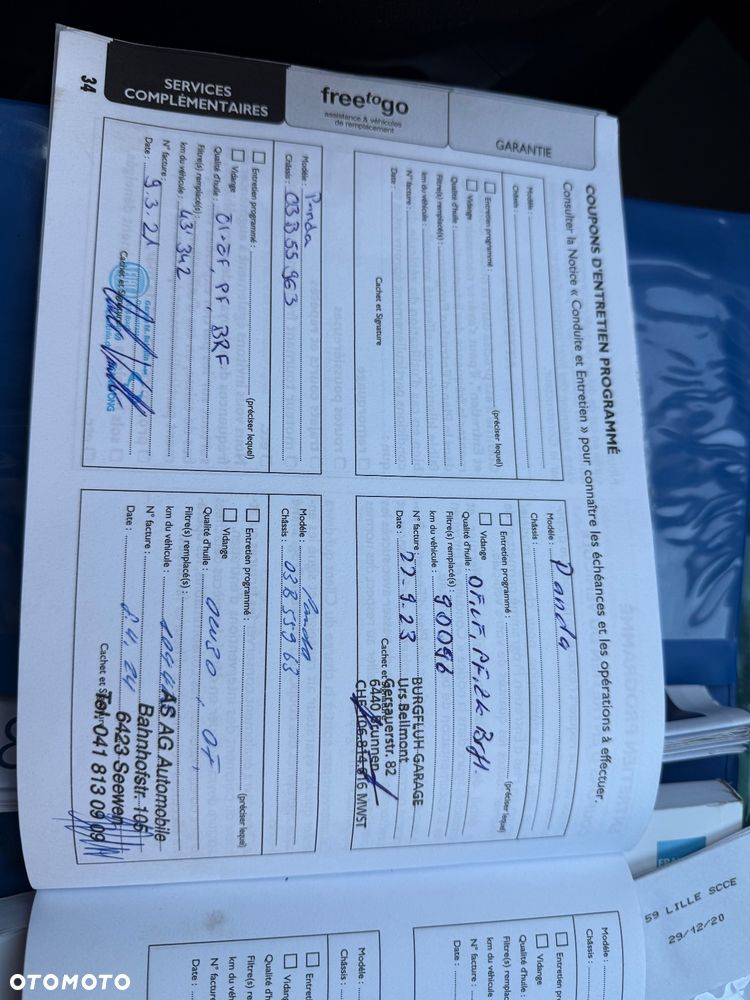 34
SERVICES
COMPLÉMENTAIRES
free to go
assistance & véhicules
de remplacement
GARANTIE
COUPONS D'ENTRETIEN PROGRAMMÉ
Consulter la Notice « Conduite et Entretien » pour connaître les échéances et les opérations à effectuer.
Modèle :
Châssis :
Entretien programmé : (préciser lequel)
Vidange
Qualité d'huile :
Filtre(s) remplacé(s) :
km du véhicule :
N° facture :
Date :
Cachet et Signature
Modèle : Panda
Châssis :
Entretien programmé : (préciser lequel)
Vidange
Qualité d'huile :
Filtre(s) remplacé(s) :
km du véhicule : 90096
N° facture :
Date : 27-9.23
Cachet et
BURGFLUH GARAGE
Urs Bellmont
Gersauerstr. 82
6440 Brunnen
MWST
Modèle : Panda
Châssis : 03B55963
Entretien programmé : (préciser lequel)
Vidange
Qualité d'huile : ÖL-ÖF, PF, BRF
Filtre(s) remplacé(s) :
km du véhicule : 43'342
N° facture :
Date : 9.3.21
Cachet et
Modèle : Panda
Châssis : 03B55963
Entretien programmé : (préciser lequel)
Vidange
Qualité d'huile : 0W30, ÖF
Filtre(s) remplacé(s) :
km du véhicule :
N° facture :
Date : 2.4.24
Cachet et
AS AG Automobile
Bahnhofstr. 105
6423 Seewen
Tel. 041 813 09 09
Modèle :
Châssis :
Entret
Vidange
Qualité d'h
Filtre(s) rempla
km du véhicule
N° facture
Date :
Modèle :
Châssis :
Entretien p
Vidange
Qualité d'huile
Filtre(s) remplac
km du véh
N° factu
Date :
59 LILLE SCCE
29/12/20
OTOMOTO